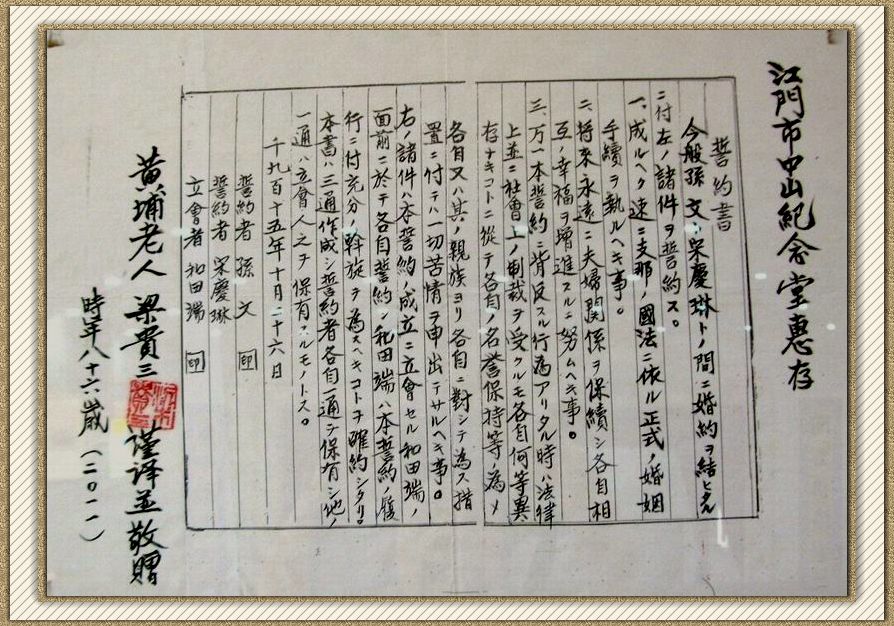 江門市中山紀念堂惠存
誓約書
今般孫文宋慶琳トノ間ニ婚約ヲ結ヒタル
ニ付左ノ諸件ヲ誓約ス。
一、成ルヘク速ニ支那ノ國法ニ依ル正式ノ婚姻
手續ヲ執ルヘキ事。
二、将來永遠ニ夫婦関係ヲ保續シ各自相
互ノ幸福ヲ增進スルニ努ムヘキ事。
三、万一本誓約ニ背反スル行為アリタル時ハ法律
上並ニ社會上ノ制裁ヲ受クルモ各自何等異
存ナキコトニ從テ各自ノ名誉保持等ノ為メ
各自又ハ其ノ親族ヨリ各自ニ對シテ為ス措
置ニ付テハ一切苦情ヲ申出テサルヘキ事。
右ノ諸件ハ本誓約ノ成立ニ立會セル和田端ノ
面前ニ於テ各自誓約シ和田端ハ本誓約ノ履
行ニ付充分ノ斡旋ヲ為スヘキコトヲ確約シタリ。
本書ハ三通作成シ誓約者各自通ヲ保有シ他ノ
一通ハ立會人之ヲ保有スルモノトス。
千九百十五年十月二十六日
誓約者 孫文 印
誓約者 宋慶琳
立會者 和田端 印
黄埔老人 梁貴三 謹译並敬贈
時年八十六歲（二〇一一）